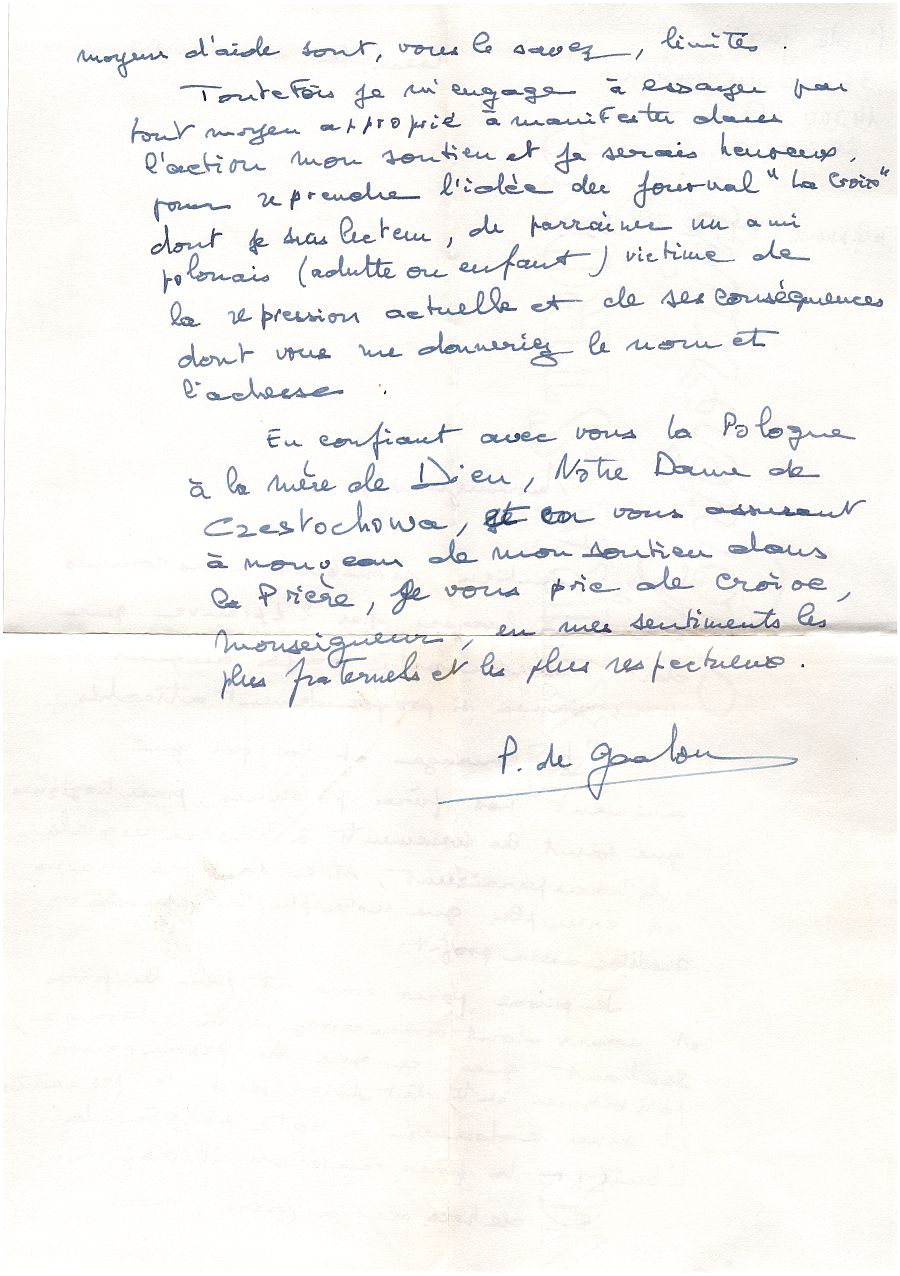 moyens d'aide sont, vous le savez, limités.
Toutefois je m'engage à essayer par
tout moyen approprié à manifester dans
l'action mon soutien et je serais heureux,
pour reprendre l'idée du journal "La Croix"
dont je suis lecteur, de parrainer un ami
polonais (adulte ou enfant) victime de
la répression actuelle et de ses conséquences
dont vous me donneriez le nom et
l'adresse.
En confiant avec vous la Pologne
à la mère de Dieu, Notre Dame de
Czestochowa, et en vous assurant
à nouveau de mon soutien dans
la Prière, Je vous prie de croire,
Monseigneur, en mes sentiments les
plus fraternels et les plus respectueux.
P. de